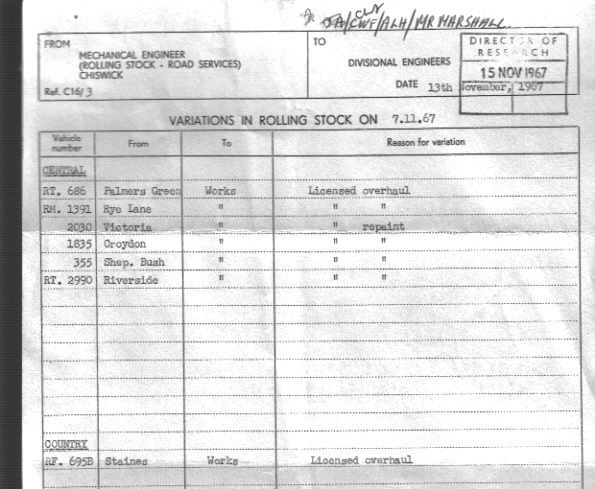 CLR
JA/CWF/ALH/MR MARSHALL.
FROM
MECHANICAL ENGINEER
(ROLLING STOCK - ROAD SERVICES)
CHISWICK
Ref. C16/ 3
TO
DIVISIONAL ENGINEERS
DATE 13th November, 1967
DIRECTOR OF
RESEARCH
15 NOV 1967
VARIATIONS IN ROLLING STOCK ON 7.11.67
Vehicle number From To Reason for variation
CENTRAL
RT. 686 Palmers Green Works Licensed overhaul
RM. 1391 Rye Lane " " "
2030 Victoria " " repaint
1835 Croydon " " "
355 Shep. Bush " " "
RT. 2990 Riverside " " "
COUNTRY
RF. 695B Staines Works Licensed overhaul